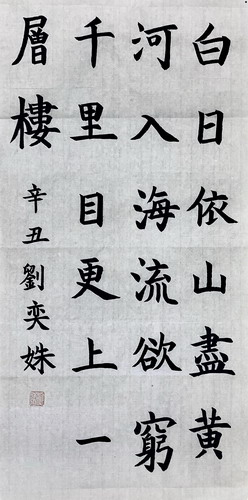 白日依山盡黃
河入海流欲窮
千里目更上一
層樓
辛丑劉奕姝